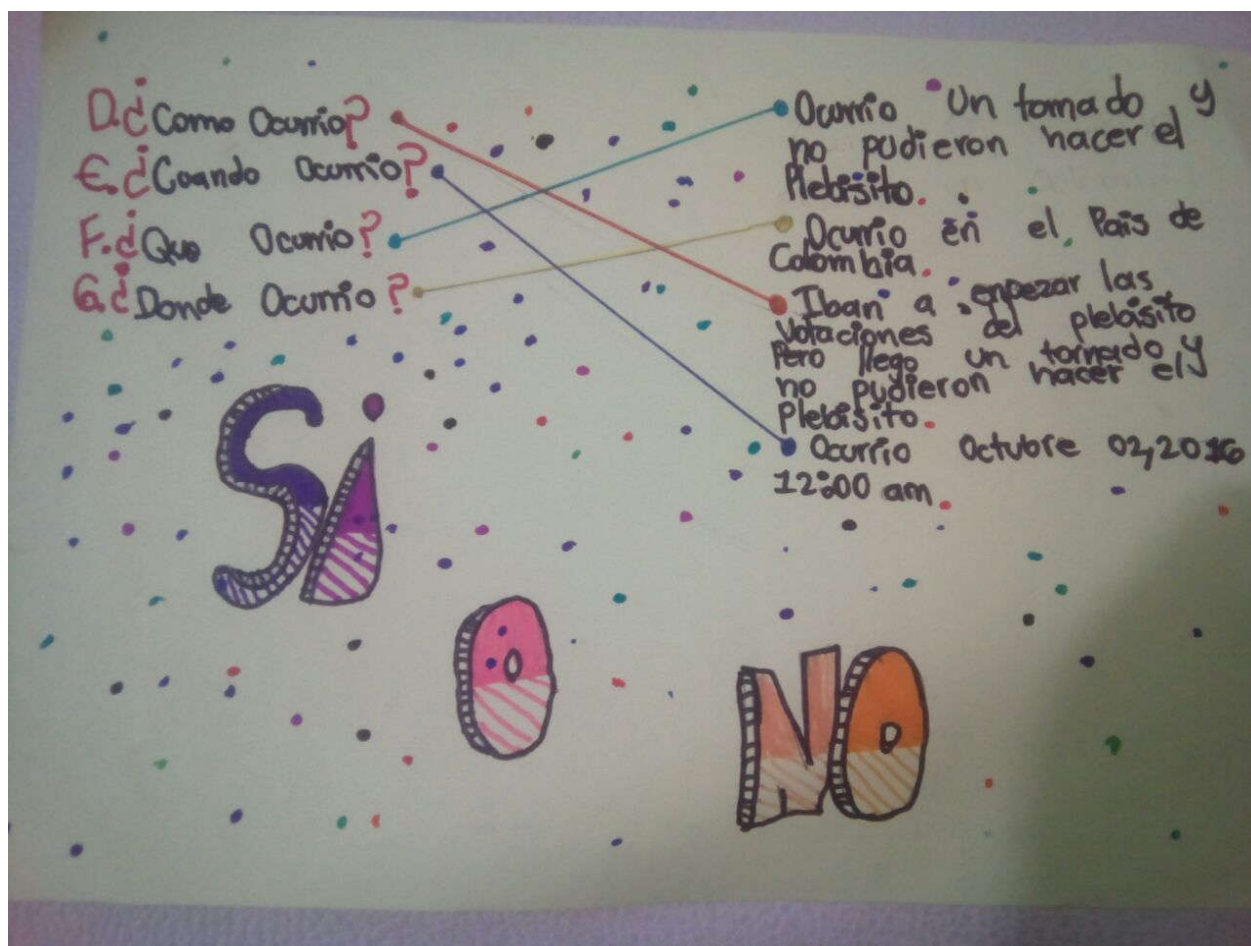 D.¿Como Ocurrio?
E.¿Coando Ocurrio?
F.¿Que Ocurrio?
G.¿Donde Ocurrio?
Ocurrio Un tornado y
no pudieron hacer el
Plebisito.
Ocurrio en el Pais de
Colombia.
Iban a enpezar las
votaciones del plebisito
Pero llego un tornado y
no pudieron hacer el
Plebisito.
Ocurrio Octubre 02,2016
12:00 am.
Si
O
NO